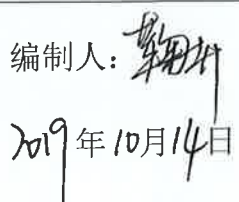 编制人：
2019年10月14日